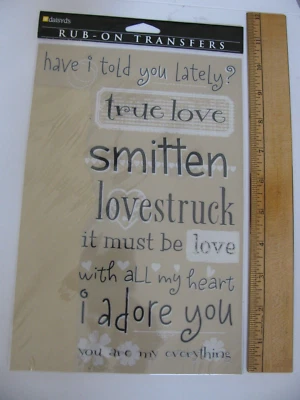 daisyd's
RUB-ON TRANSFERS
have i told you lately?
true love
smitten
lovestruck
it must be love
with all my heart
i adore you
you are my everything